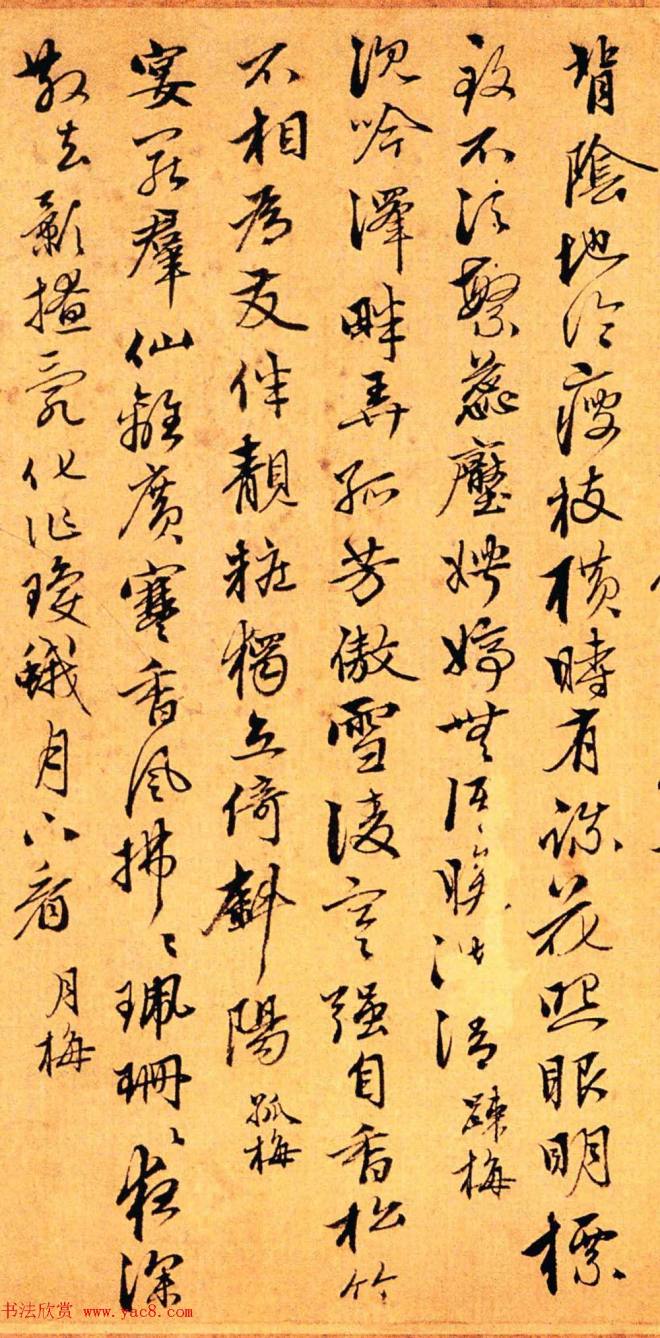 背陰地冷瘦枝橫時有疎花照眼明標
致不須繁蕊壓娉婷無語暎池清 疎梅
沉吟澤畔弄孤芳傲雪凌寒強自香松竹
不相為友伴靚粧獨立倚斜陽 孤梅
宴罷羣仙離廣寒香風拂〻珮珊〻夜深
散去影撩亂化作瓊蛾月下看 月梅
书法欣赏 www.yac8.com